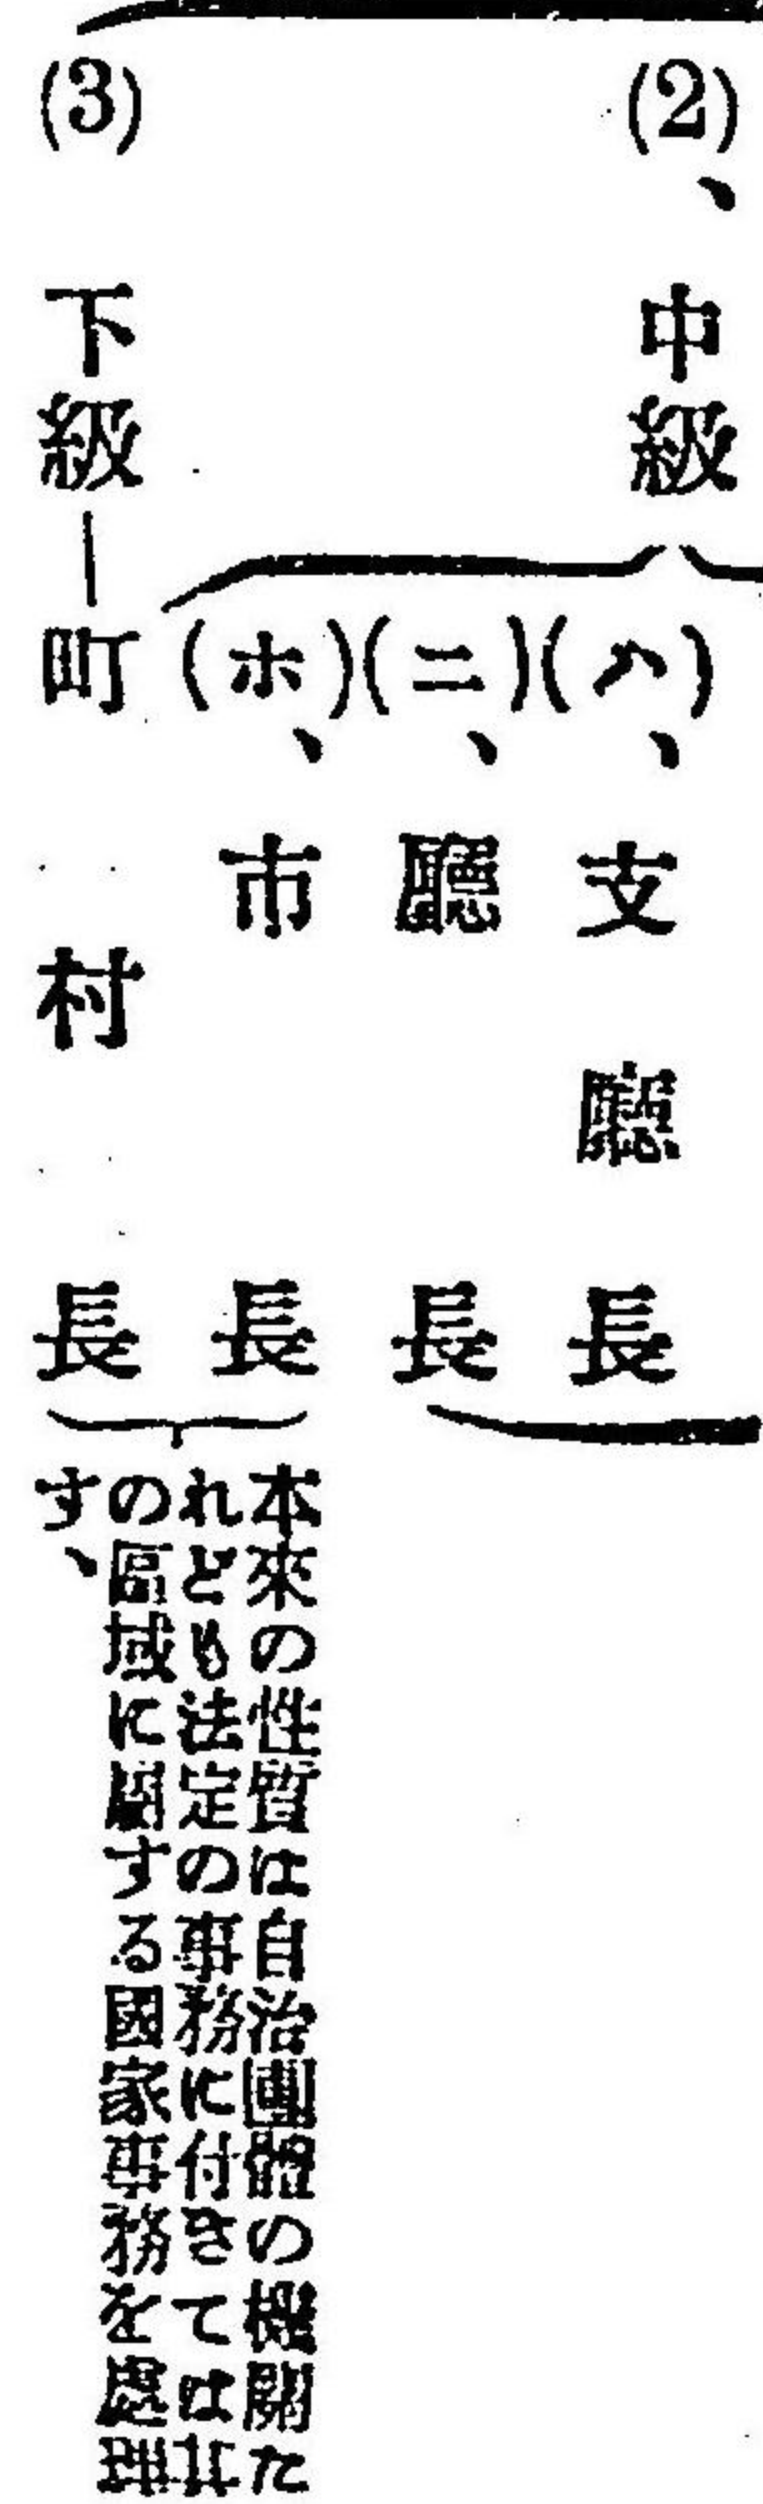 (2)、中級
(ハ)、支廳長
(ニ)、廳長
(ホ)、市長
(3)下級―町村長
本來の性質は自治團體の機關た
れども法定の事務に付きては其
の區域に關する國家事務を處理
す、